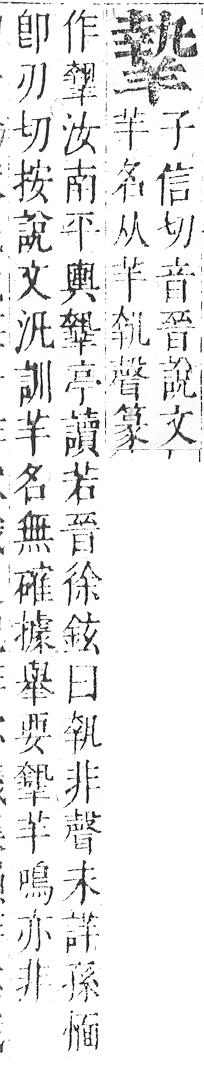 𦎷
子信切音晉說文
羊名从羊執聲篆
作𦎷汝南平輿𦎷亭讀若晉徐鉉曰執非聲未詳孫愐
卽刃切按說文汎訓羊名無確據舉要𦎷羊鳴亦非